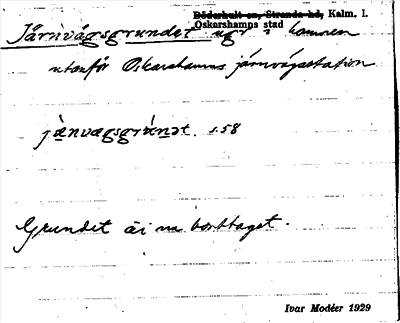 Döderhult sn, Stranda hd, Kalm. l.
Oskarshamns stad
Järnvägsgrundet ugr i hamnen
utanför Oskarshamns järnvägsstation
s. 58
Grundet är nu borttaget.
Ivar Modéer 1929